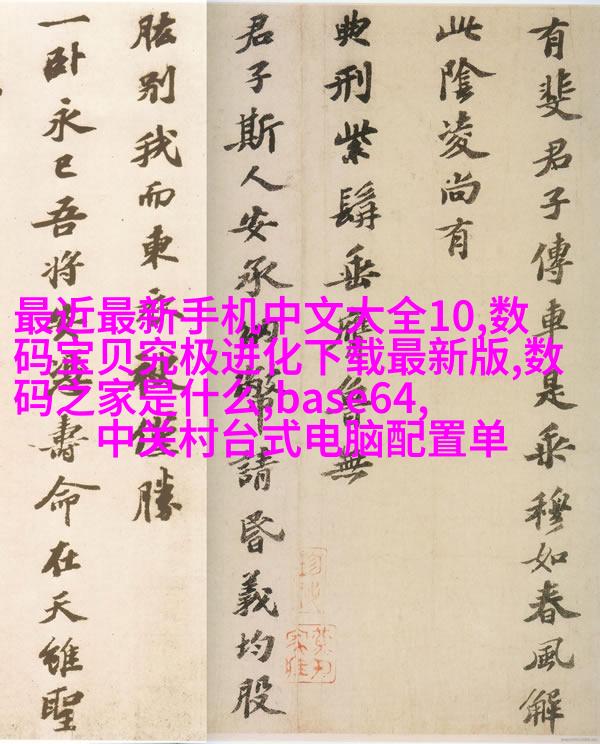 有斐君子傳車是乘穆如春風解
此陰凌尚有
典刑紫髯垂膺魯無
君子斯人安承納幣請昏義均股
肱别我而東衣袂僅勝
一卧永已吾將安壽命在天雖聖
最近最新手机中文大全10,数
码宝贝究极进化下载最新版,数
码之家是什么,base64,
中关村台式电脑配置单